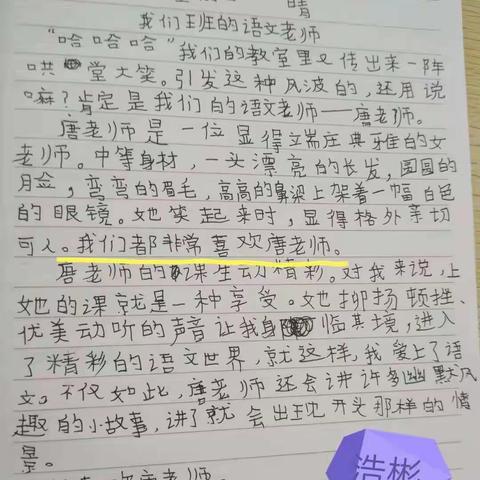 晴
我们班的语文老师
“哈哈哈”我们的教室里又传出来一阵
哄堂大笑。引发这种风波的，还用说
嘛？肯定是我们的语文老师——唐老师。
唐老师是一位显得端庄典雅的女
老师。中等身材，一头漂亮的长发，圆圆的
脸，弯弯的眉毛，高高的鼻梁上架着一幅白色
的眼镜。她笑起来时，显得格外亲切
可人。我们都非常喜欢唐老师。
唐老师的课生动精彩。对我来说，上
她的课就是一种享受。她抑扬顿挫、
优美动听的声音让我身临其境，进入
了精彩的语文世界，就这样，我爱上了语
文。不仅如此，唐老师还会讲许多幽默风
趣的小故事，讲了就会出现开头那样的情
景。
唐老师。
浩彬